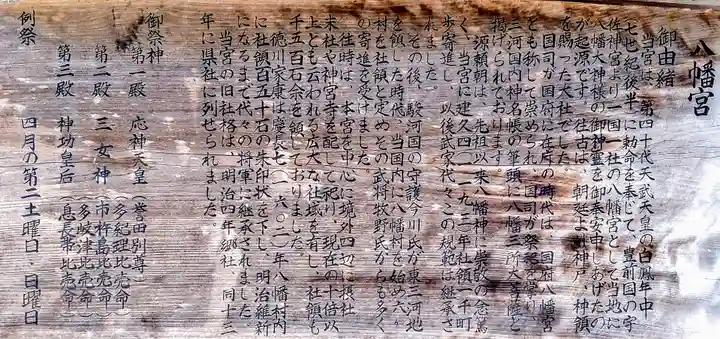 八幡宮
御由緒
当宮は、第四十代天武天皇の白鳳年中
(七世紀後半)に勅命を奉じて、豊前国の宇
佐神宮より一国一社の八幡宮として当地に
八幡大神様の御神霊を御奉安申しあげたの
が起源です。往古は、朝廷より神戸、神領
を賜った大社でした。
国司が国府に在庁の時代は、国府八幡宮
とも称して崇められ、国司が祭祀を掌り、
三河国内神名帳の筆頭に八幡三所大菩薩と
掲げられております。
源頼朝は、先祖以来八幡神に崇敬の念篤
く、当宮に建久四(一一九三)年社領一千町
歩寄進し、以後武家代々この規範は継承さ
れました。
その後、駿河国の守護今川氏が東三河地
を領した時代、当国内に八幡村を始め六ヶ
村を社領と定めその武将牧野氏からも多く
の寄進を受けました。
往時は、本宮を中心に境外四辺に摂社
末社や神宮寺を配して祀り、現在の十倍以
上とも云われる広大な社域を有し、社領も
千五百石余を領しておりました。
徳川家康は慶長七(一六〇二)年八幡村内
に社領百五十石の朱印状を下し、明治維新
になるまで代々の将軍に継承されました。
当宮の旧社格は、明治四年郷社、同十三
年に県社に列せられました。
御祭神
第一殿 応神天皇(誉田別尊)
第二殿 三女神(多紀理比売命 市杵島比売命 多岐津比売命)
第三殿 神功皇后(息長帯比売命)
例祭 四月の第二土曜日・日曜日